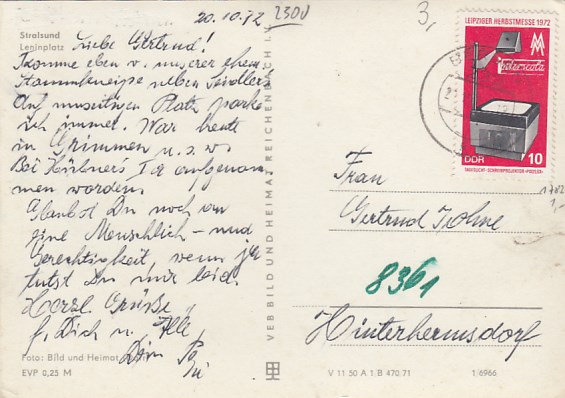 20.10.72
2300
3,
Stralsund
Leninplatz
Liebe Gertrud!
Komme eben v. unserer ehem.
Stammkneipe neben Seidlers
Auf unseitigen Platz parke
ich immer. War heute
in Grimmen u.s.w.
Bei Hübner's I a aufgenom
men worden.
Glaubst Du noch an
eine Menschlich- und
Gerechtigkeit, wenn ja
tutst Du mir leid.
Herzl. Grüße
f. Dich u. Alle,
Dein
Foto: Bild und Heimat
EVP 0,25 M
VEB BILD UND HEIMAT REICHENBACH I. V.
LEIPZIGER HERBSTMESSE 1972
MM
DDR 10
1702
1,-
Frau
Gertrud
8361
Hinterhermsdorf
V 11 50 A 1/B 470/71
1/6966